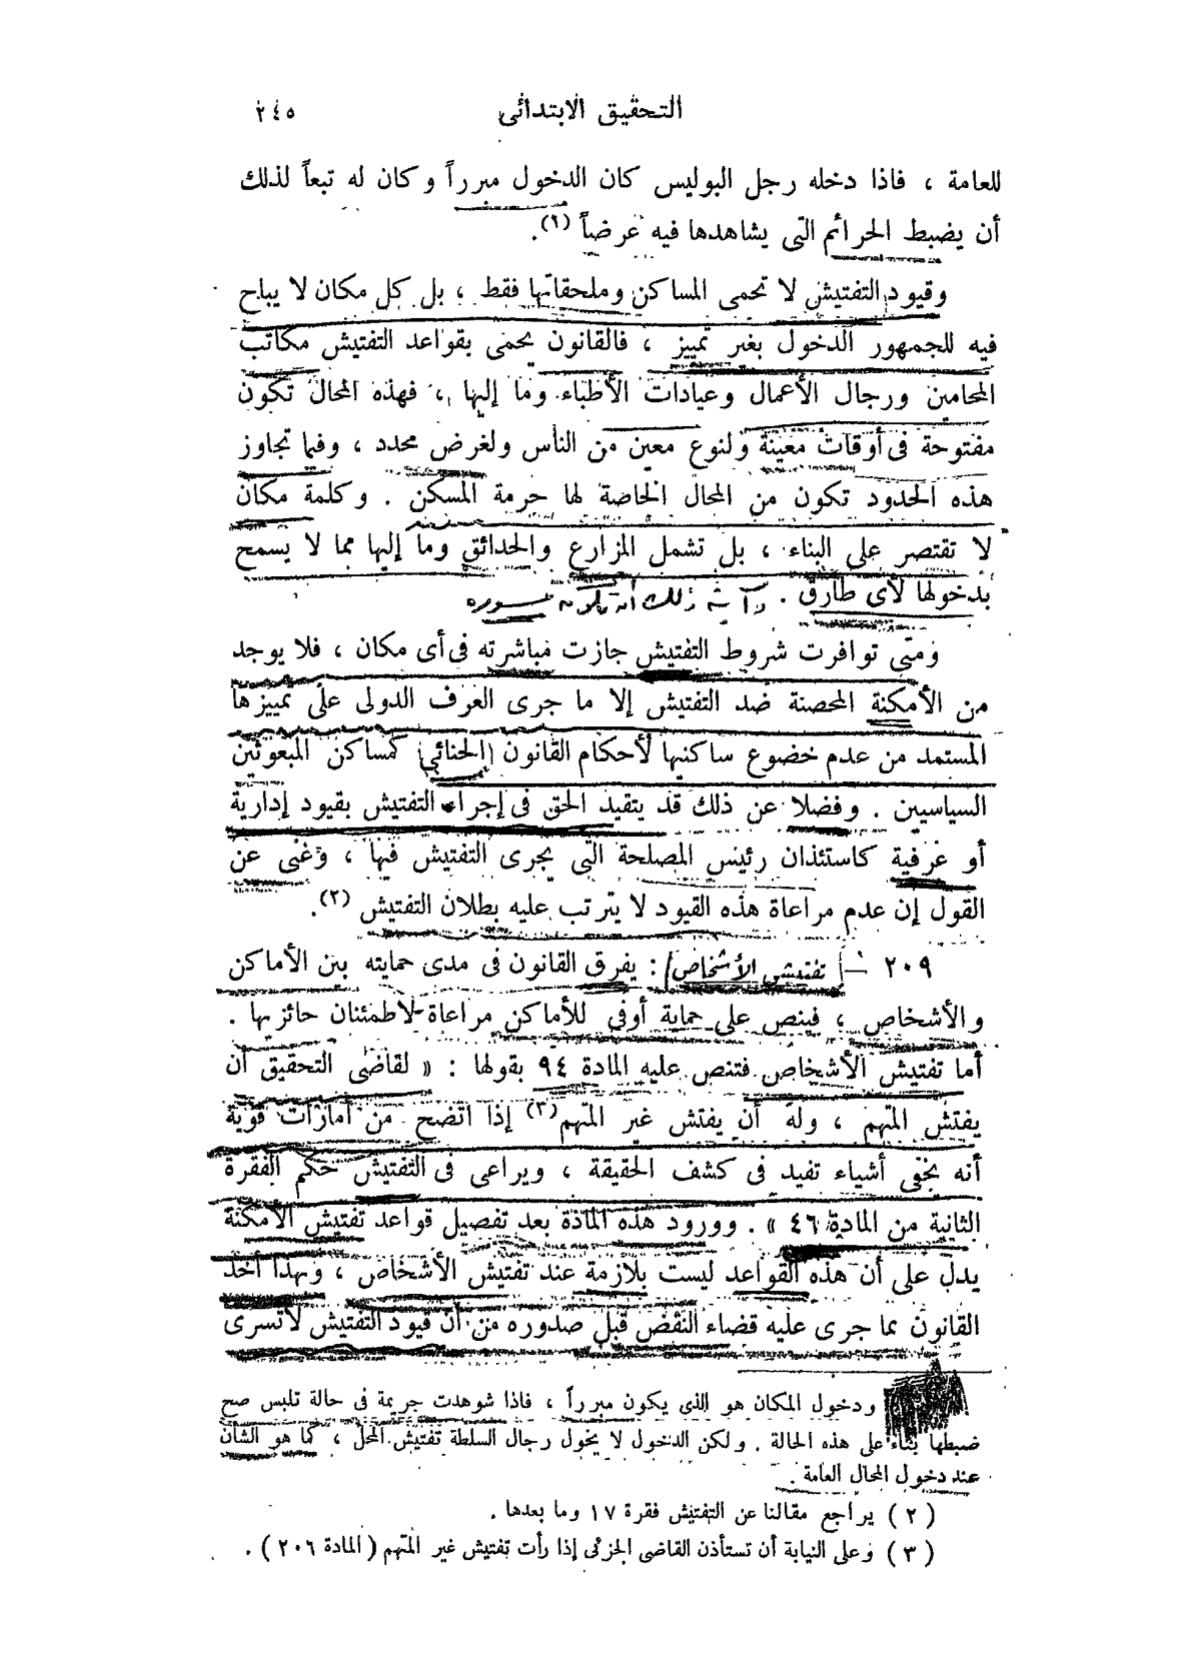 التحقيق الابتدائى ٢٤٥
للعامة ، فاذا دخله رجل البوليس كان الدخول مبرراً وكان له تبعاً لذلك
أن يضبط الجرائم التى يشاهدها فيه عرضاً (١).
وقيود التفتيش لا تحمى المساكن وملحقاتها فقط ، بل كل مكان لا يباح
فيه للجمهور الدخول بغير تمييز ، فالقانون يحمى بقواعد التفتيش مكاتب
المحامين ورجال الأعمال وعيادات الأطباء وما إليها ، فهذه المحال تكون
مفتوحة فى أوقات معينة ولنوع معين من الناس ولغرض محدد ، وفيما تجاوز
هذه الحدود تكون من المحال الخاصة لها حرمة المسكن . وكلمة مكان
لا تقتصر على البناء ، بل تشمل المزارع والحدائق وما إليها مما لا يسمح
بدخولها لأى طارق .
ومتى توافرت شروط التفتيش جازت مباشرته فى أى مكان ، فلا يوجد
من الأمكنة المحصنة ضد التفتيش إلا ما جرى العرف الدولى على تمييزها
المستمد من عدم خضوع ساكنيها لأحكام القانون (الجنائى) كمساكن المبعوثين
السياسيين . وفضلا عن ذلك قد يتقيد الحق فى إجراء التفتيش بقيود إدارية
أو عرفية كاستئذان رئيس المصلحة التى يجرى التفتيش فيها ، وغنى عن
القول إن عدم مراعاة هذه القيود لا يترتب عليه بطلان التفتيش (٢).
٢٠٩ — تفتيش الأشخاص : يفرق القانون فى مدى حمايته بين الأماكن
والأشخاص ، فينص على حماية أوفى للأماكن مراعاة لاطمئنان حائزيها .
أما تفتيش الأشخاص فتنص عليه المادة ٩٤ بقولها : « لقاضى التحقيق أن
يفتش المتهم ، وله أن يفتش غير المتهم (٣) إذا اتضح من أمارات قوية
أنه يخفى أشياء تفيد فى كشف الحقيقة ، ويراعى فى التفتيش حكم الفقرة
الثانية من المادة ٤٦ » . وورود هذه المادة بعد تفصيل قواعد تفتيش الأمكنة
يدل على أن هذه القواعد ليست بلازمة عند تفتيش الأشخاص ، وبهذا أخذ
القانون بما جرى عليه قضاء النقض قبل صدوره من أن قيود التفتيش لا تسرى
ودخول المكان هو الذى يكون مبرراً ، فاذا شوهدت جريمة فى حالة تلبس صح
ضبطها بناء على هذه الحالة . ولكن الدخول لا يخول رجال السلطة تفتيش المحل ، كما هو الشأن
عند دخول المحال العامة .
(٢) يراجع مقالنا عن التفتيش فقرة ١٧ وما بعدها .
(٣) وعلى النيابة أن تستأذن القاضى الجزئى إذا رأت تفتيش غير المتهم (المادة ٢٠٦) .